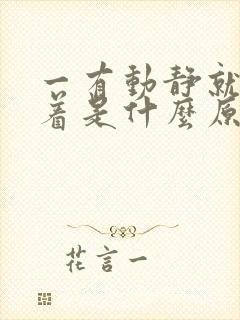 一有動靜就
着是什麼原
花言一